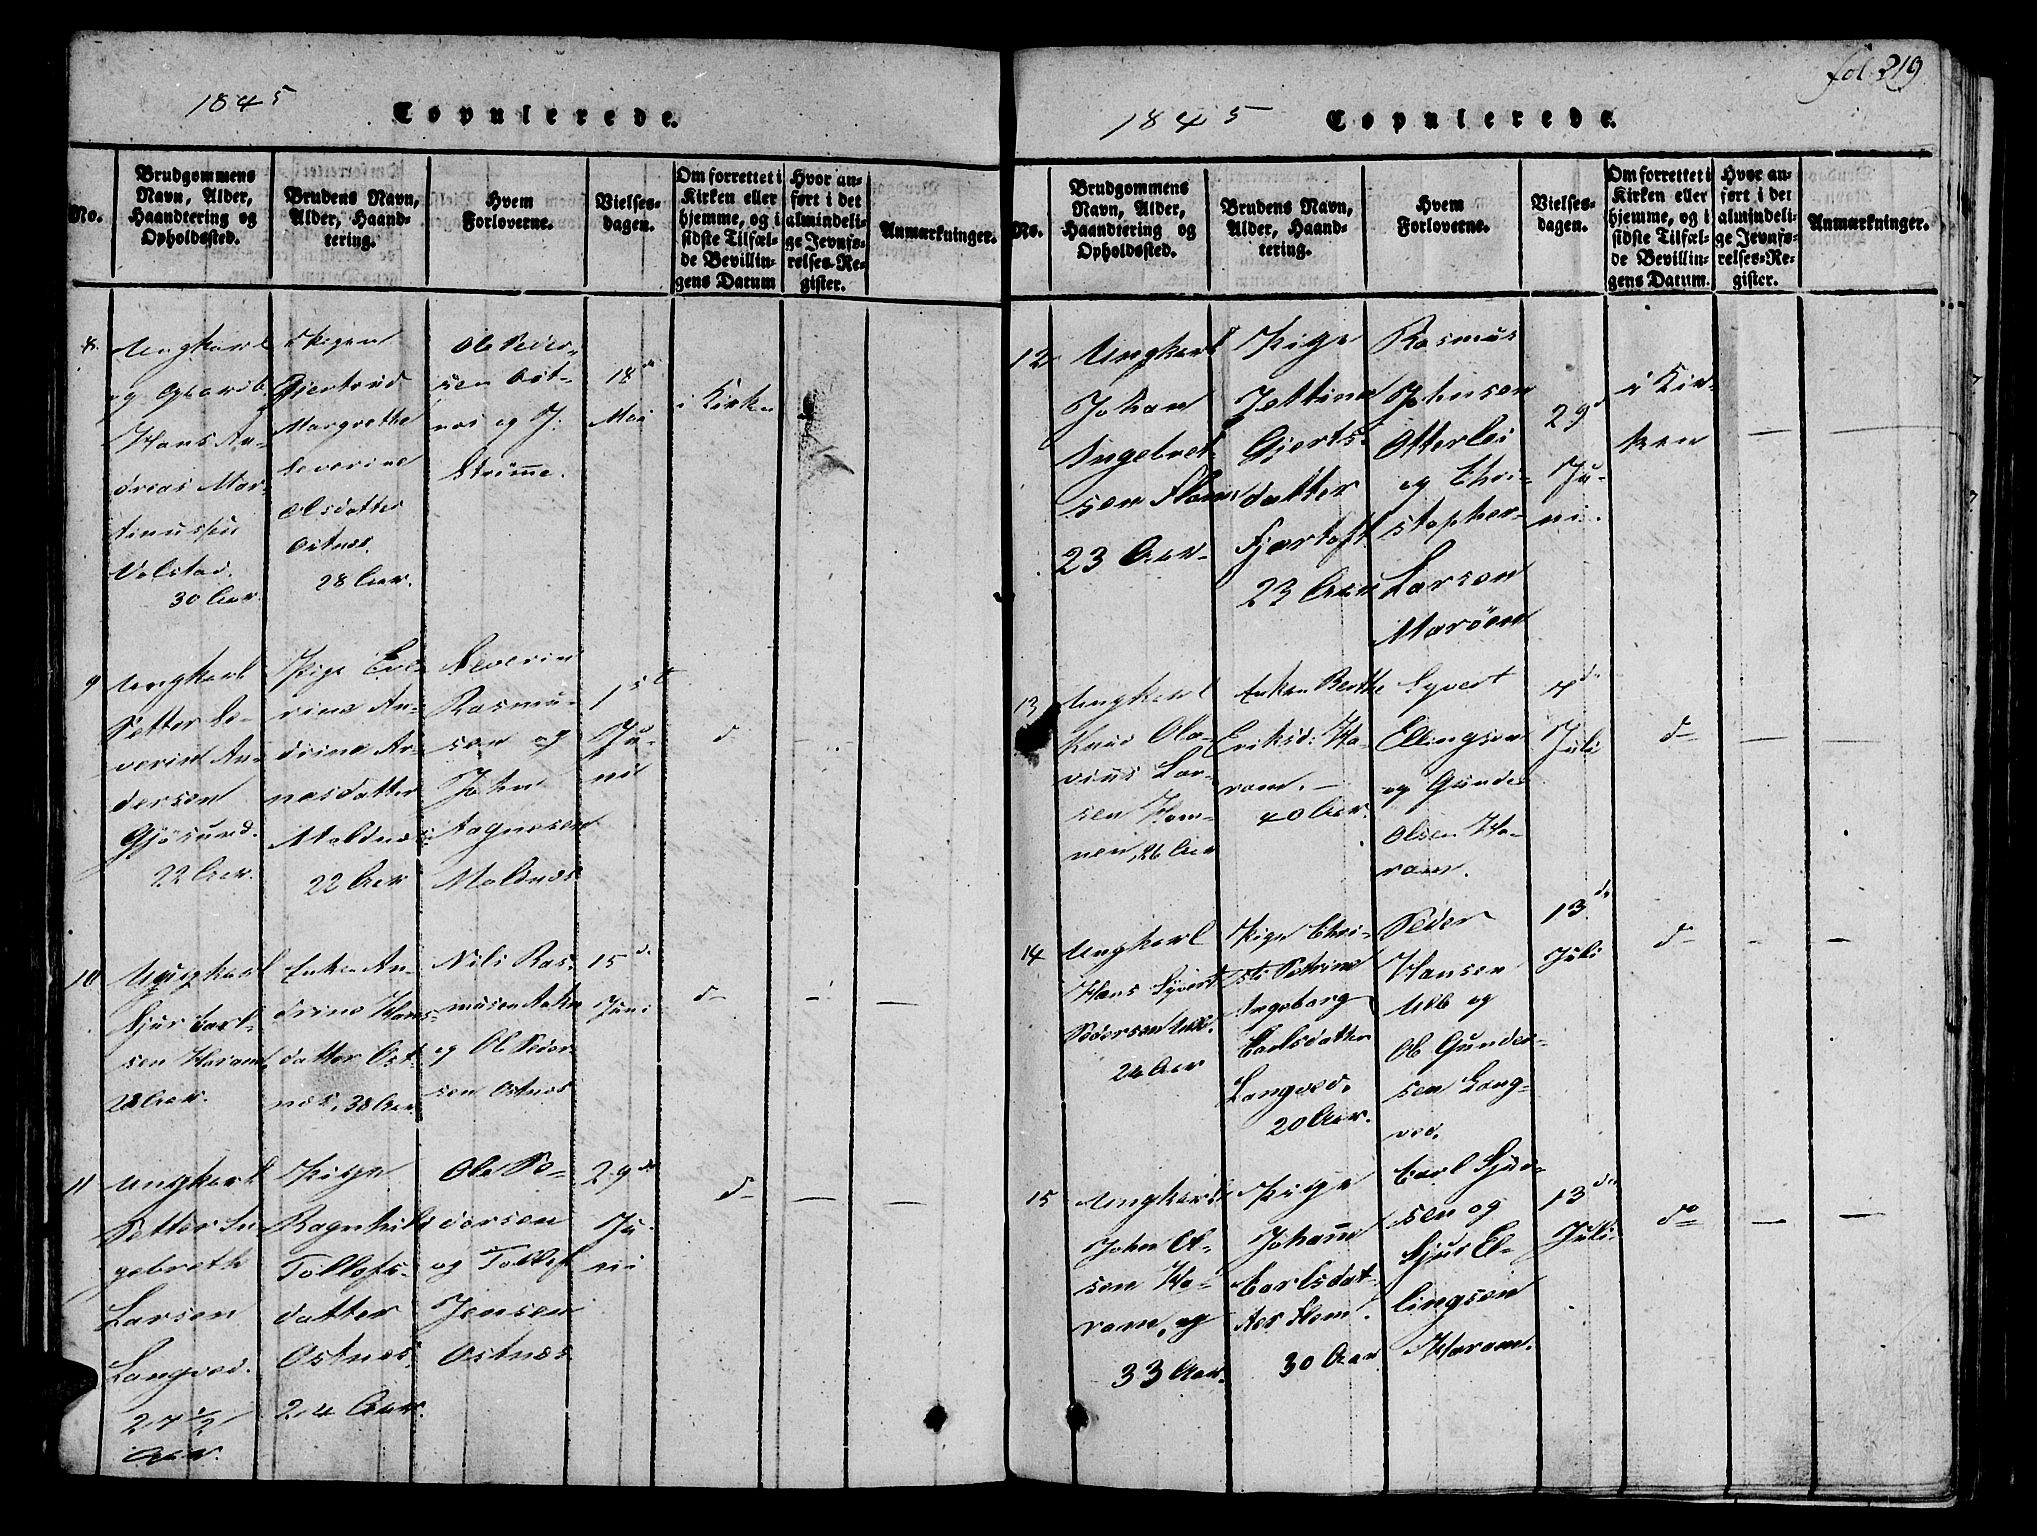 1845
Copulerede.
No.
Brudgommens
Navn, Alder,
Haandtering og
Opholdssted.
Brudens Navn,
Alder, Haand-
tering.
Hvem
Forloverne.
Vielses-
dagen.
Om forrettet i
Kirken eller
hjemme, og i
sidste Tilfæl-
de Bevillin-
gens Datum
Hvor an-
ført i det
almindeli-
ge Jevnfø-
relses-Re-
gister.
Anmærkninger.
8.
Ungkarl
og
Hans An-
dreas Mar-
tinussen
Volstad.
30 Aar.
Pigen
Gjertrud
Margrethe
Severine
Olsdatter
Ostnæs.
28 Aar.
Ole Peder-
sen Ost-
næs og J.
Strømme.
18de
Mai
i Kirken
9
Ungkarl
Petter Se-
verin An-
dersen
Gjøsund.
22 Aar.
Pige
rine An-
drine Ar-
nesdatter
Moldnæs.
22 Aar
Severin
Rasmu-
sen og
John
Aagnesen
Moldnæs
1st
Ju-
ni
d
10
Ungkarl
Sjur Carl-
sen Haram,
28 Aar.
Enke An-
drine Hans-
datter Ost-
næs. 38 Aar
Nils Ras-
musen
og Ole Peder-
sen Ostnæs
15de
Juni
do
11
Ungkarl
Petter In-
gebreth
Larsen
Longved.
27 1/2
Aar.
Pige
Ragnhild
Tollefs-
datter
Ostnæs
24 Aar.
Ole Pe-
dersen
og Tollef
Jensen
Ostnæs
29de
Ju-
ni
do
fol. 219
1845
Copulerede.
No.
Brudgommens
Navn, Alder,
Haandtering og
Opholdssted.
Brudens Navn,
Alder, Haand-
tering.
Hvem
Forloverne.
Vielses-
dagen.
Om forrettet i
Kirken eller
hjemme, og i
sidste Tilfæl-
de Bevillin-
gens Datum.
Hvor an-
ført i det
almindeli-
ge Jevnfø-
relses-Re-
gister.
Anmærkninger.
12
Ungkarl
Johan
Ingebret-
sen Flem
23 Aar
Pige
Jettine
Gjerts-
datter
Fjærtoft
23 Aar
Rasmus
Johnsen
Otterlei
og Chri-
stopher
Larsen
Marøen
29d
Ju-
ni.
i Kir-
ken
13
Ungkarl
Knud Ola-
vius Lar-
sen Ham-
nen, 26 Aar
Enken Berthe
Eriksd: Ha-
ram. -
40 Aar.
Syvert
Ellingsen
og Gunder
Olsen Ha-
ram.
7de
Juli
do
14
Ungkarl
Hans Syvert
Pedersen Ulle.
24 Aar
Pige Chri-
sti Petrine
Ingeborg
Carlsdatter
Longved.
20 Aar.
Peder
Hansen
Ulle og
Ole Gunder-
sen Long-
ved.
13de
Juli
do
15
Ungkarl
John Ol-
sen Ha-
ram, og
33 Aar.
Pige
Johanne
Carlsdat-
ter Flem.
30 Aar
Carl Sjur-
sen og
Sjur El-
lingsen
Haram.
13de
Juli.
do